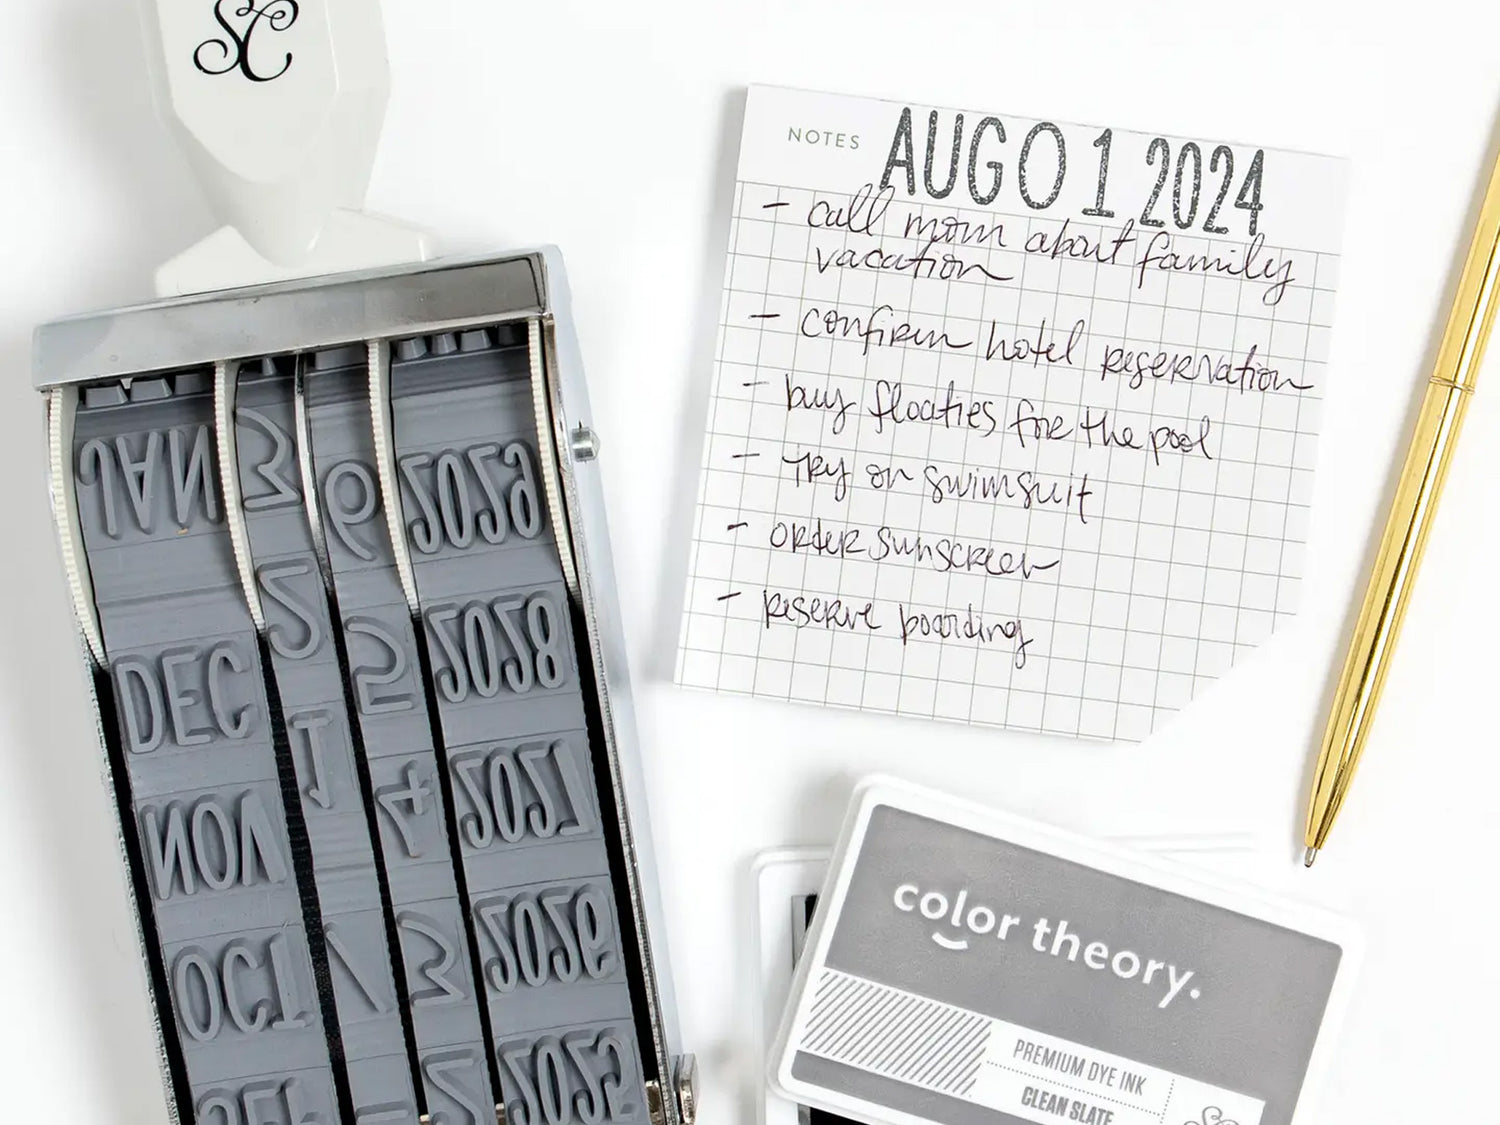 SC
NOTES AUG 01 2024
- call mom about family
vacation
- confirm hotel reservation
- buy floaties for the pool
- try on swimsuit
- order sunscreen
- reserve boarding
JAN 3 6 2029
DEC 2 5 2028
NOV 1 4 2027
OCT / 3 2026
SEP - 2 2025
color theory.
PREMIUM DYE INK
CLEAN SLATE
SC